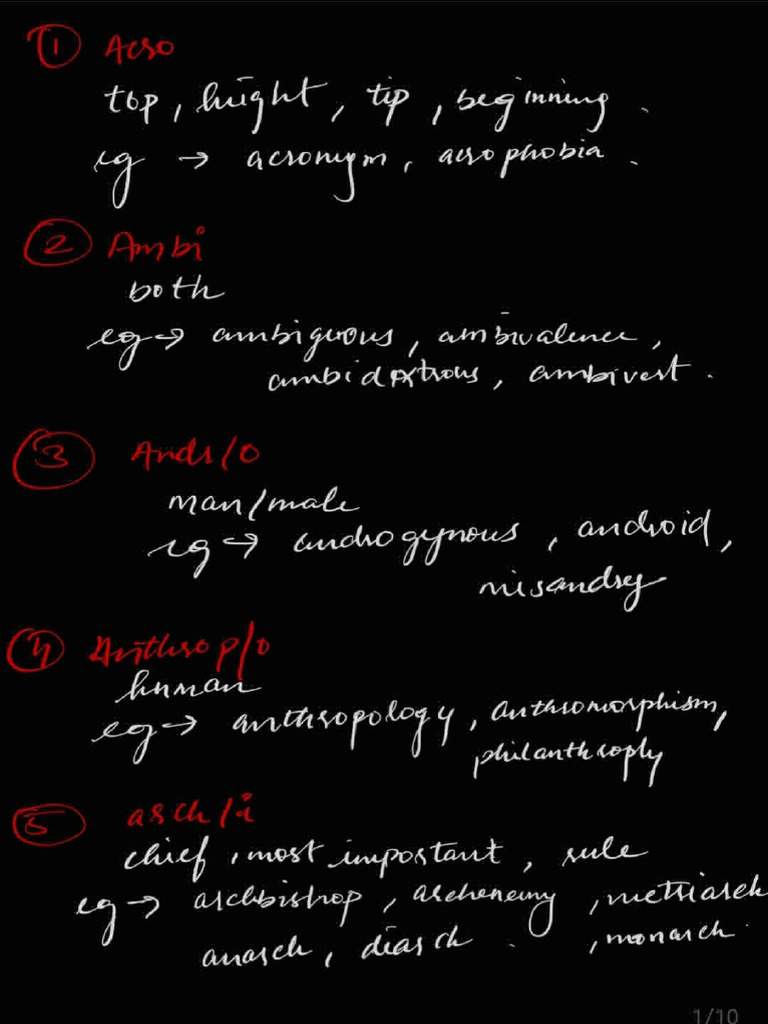 ① Acro
top, hright, tip, beginning.
eg → acronym, acrophobia.
② Ambi
both
eg → ambiguous, ambivalence,
ambidextrous, ambivert.
③ Andr/o
man/male
eg → androgynous, android,
misandry
④ Anthrop/o
human
eg → anthropology, anthromorphism,
philanthroply
⑤ arch/i
chief, most important, rule
eg → archbishop, archenemy, metriarch
anarch, diarch. , monarch.
1/10